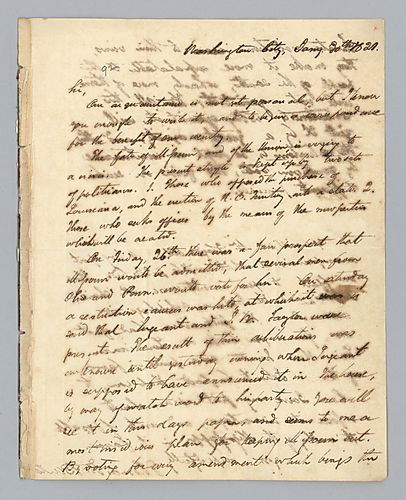 Washington City, Jany 30th 1821.
Sir,
Our acquaintance is not yet personal, but I know
you enough to write it, and to begin a correspondence
for the benefit of our country.
The fate of Missouri, and of the Union, is verging to
a crisis. The present struggle is kept up by two sets
of politicians. 1. Those who opposed the purchase of
Louisiana, and the erection of N. O. Territory into a state. 2.
Those who seek offices by the means of the new parties
which will be created.
On Friday, 26th there was a fair prospect that
Missouri would be admitted, that several men from
Ohio and Penn would vote for her. On saturday
a restriction caucus was held, at which it is
said that Sergeant and J. W. Taylor were
present. The result of their deliberations was
unknown until yesterday evening when Sergeant
is supposed to have announced it in the house,
by way of watch word to his party. You will
see it in this days paper, and seems to me a
most insidious plan for keeping Missouri out.
By voting for every amendment which brings the